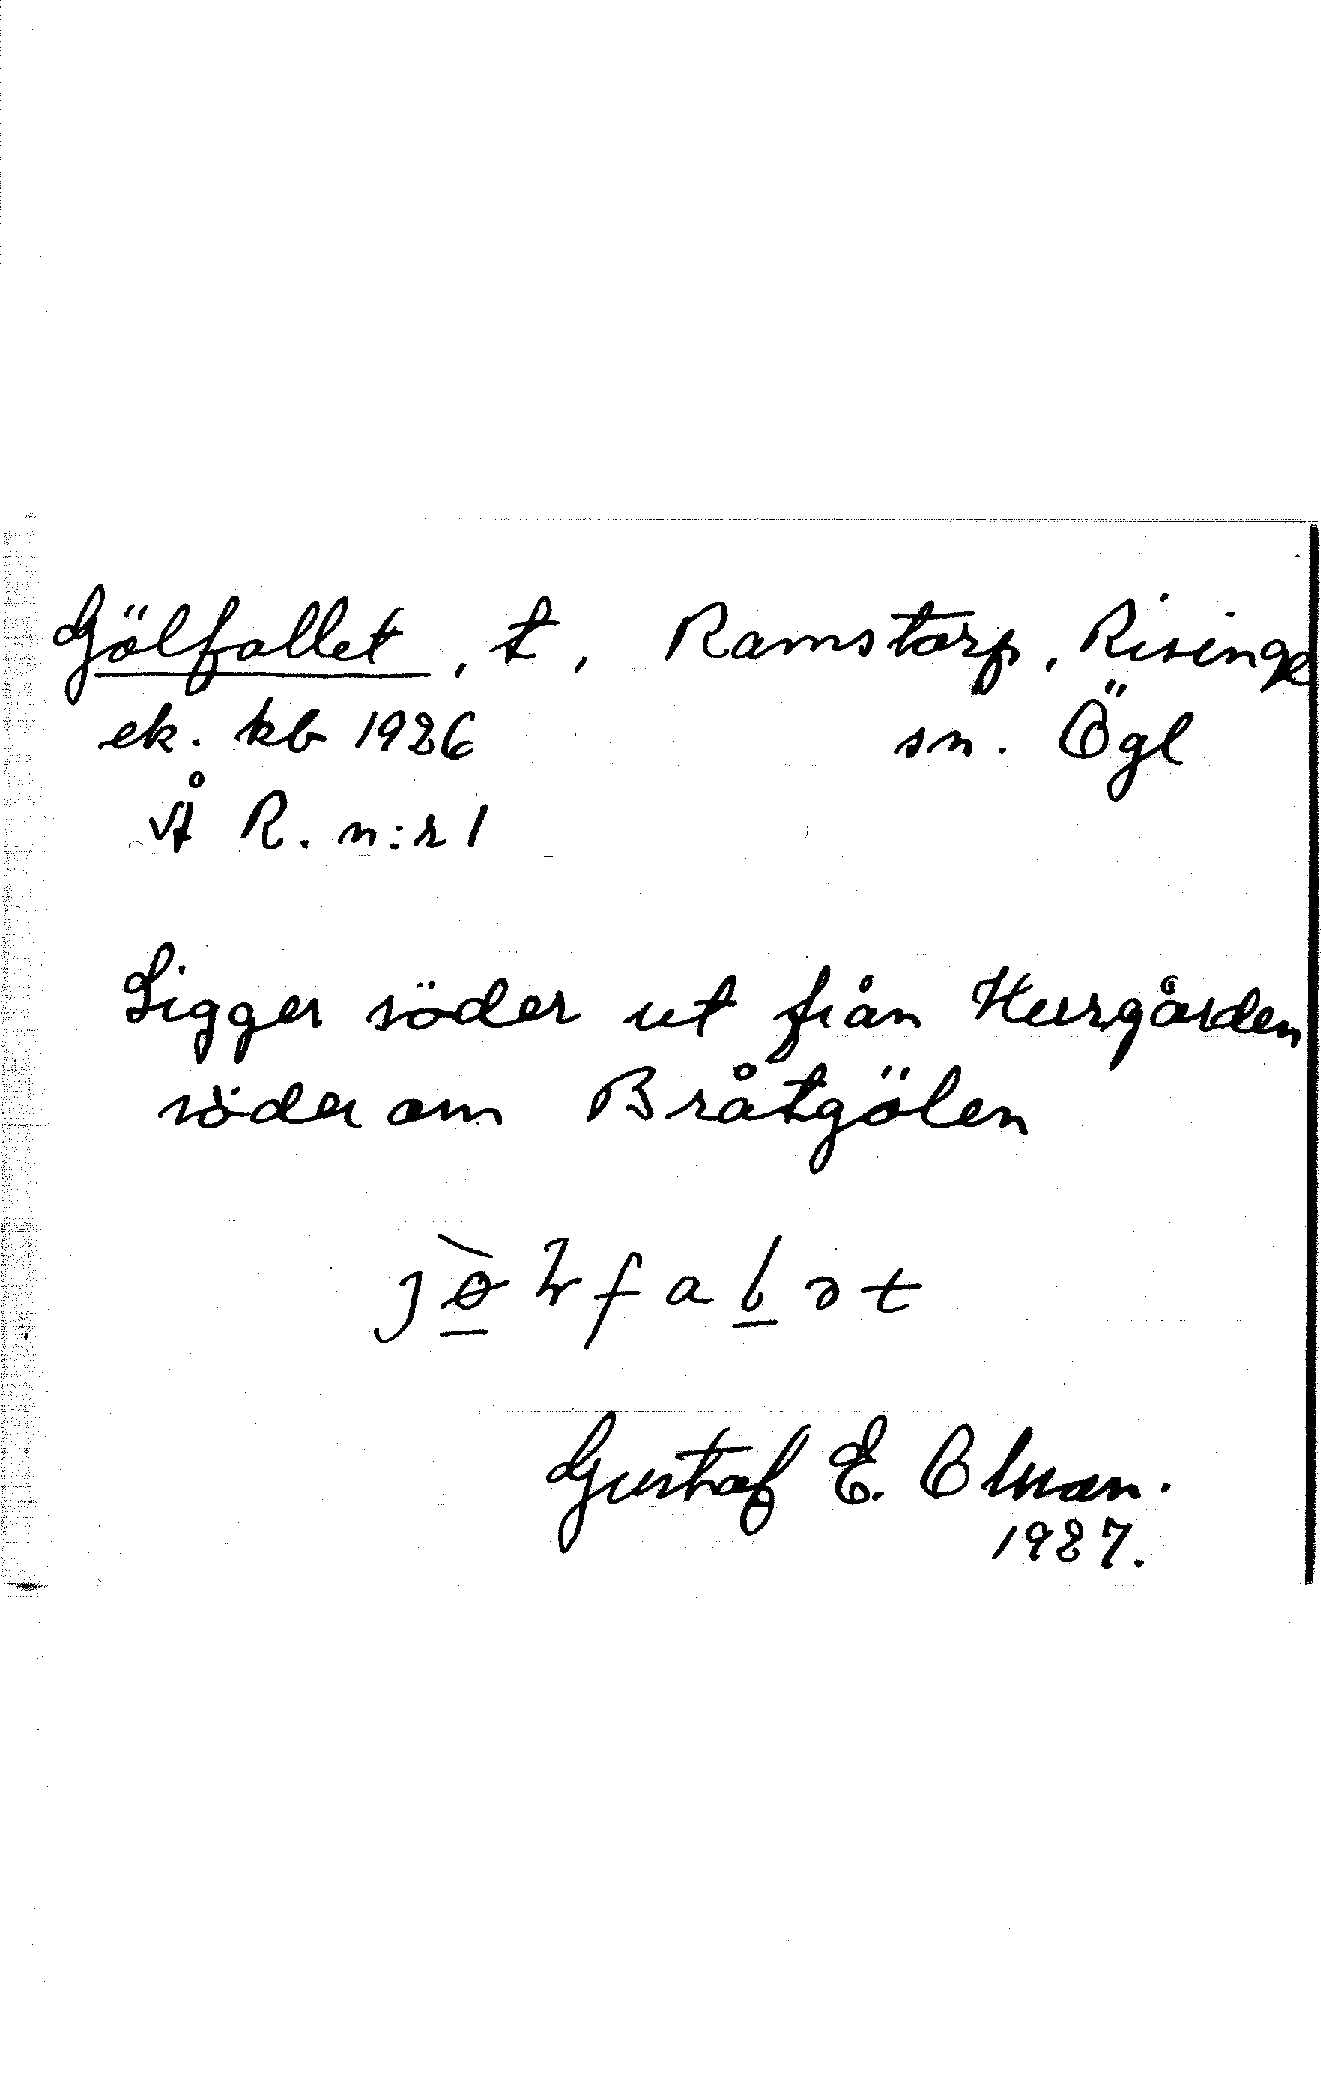 Gölfallet, t, Ramstorp, Risinge
ek. kb 1926 sn. Ögl
Å R. n:r 1
Ligger söder ut från Herrgården
söder om Bråtgölen
Gustaf E. Olman.
1927.